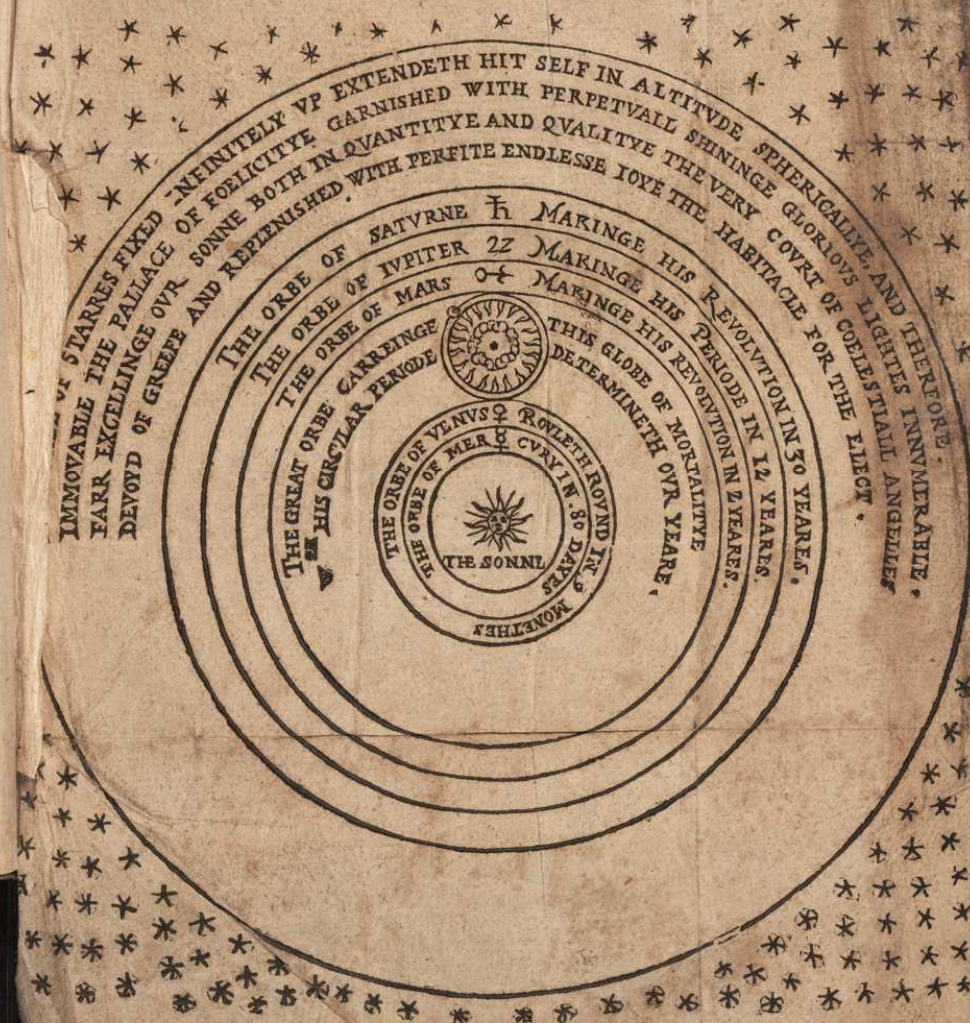 OF STARRES FIXED INFINITELY VP EXTENDETH HIT SELF IN ALTITVDE SPHERICALLYE, AND THERFORE.
IMMOVABLE THE PALLACE OF FOELICITYE GARNISHED WITH PERPETVALL SHININGE GLORIOVS LIGHTES INNVMERABLE.
FARR EXCELLINGE OVR SONNE BOTH IN QVANTITYE AND QVALITYE THE VERY COVRT OF COELESTIALL ANGELLES
DEVOYD OF GREEFE AND REPLENISHED WITH PERFITE ENDLESSE IOYE THE HABITACLE FOR THE ELECT.
THE ORBE OF SATVRNE ♄ MAKINGE HIS REVOLVTION IN 30 YEARES.
THE ORBE OF IVPITER ♃ MAKINGE HIS PERIODE IN 12 YEARES.
THE ORBE OF MARS ♂ MAKINGE HIS REVOLVTION IN 2 YEARES.
THE GREAT ORBE CARREINGE THIS GLOBE OF MORTALITYE
HIS CIRCVLAR PERIODE DETERMINETH OVR YEARE.
THE ORBE OF VENVS ♀ ROVLETH ROVND IN 9 MONETHES
THE ORBE OF MER ☿ CVRY IN 80 DAYES
THE SONNE